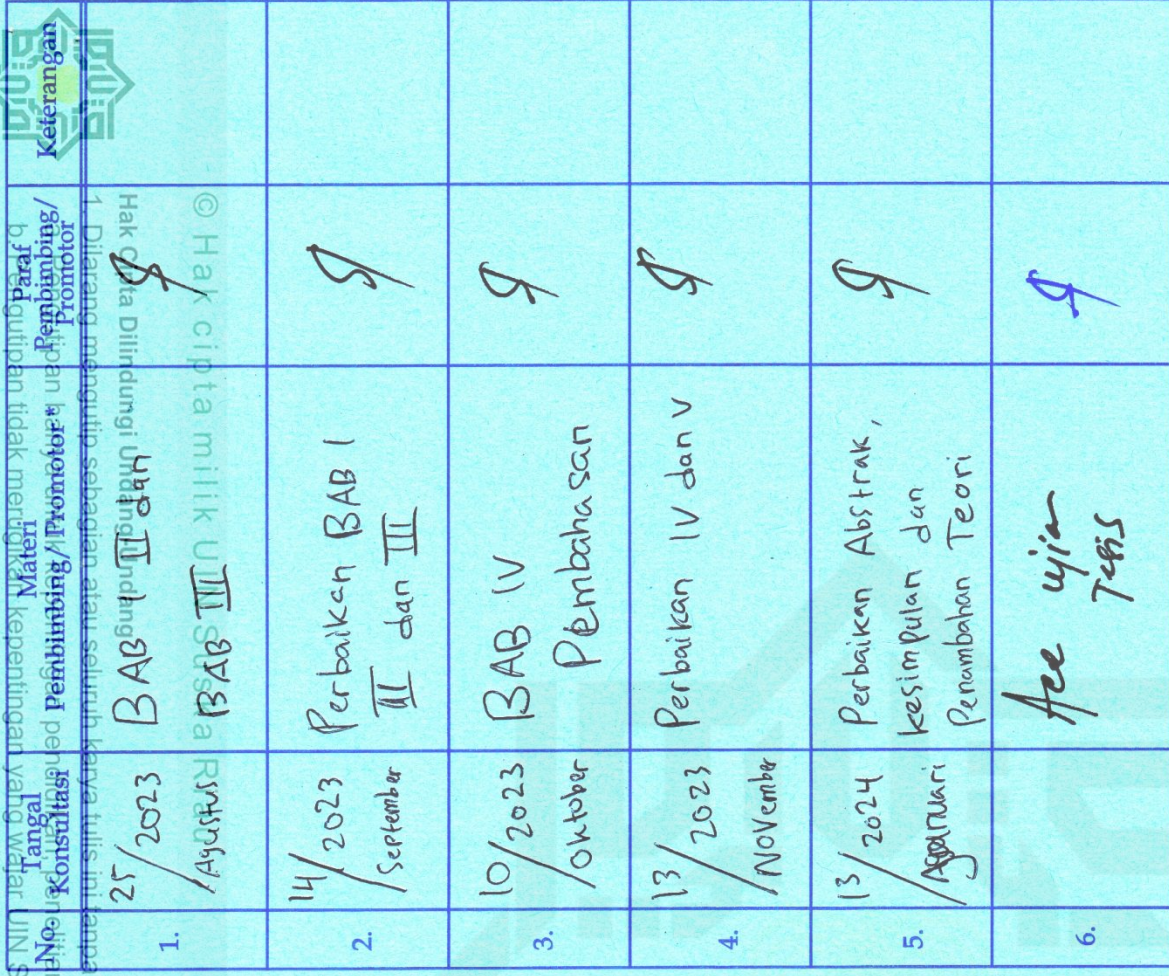 No.
Tangal
Konsultasi
Materi
Pembimbing/Promotor*
Paraf
Pembimbing/
Promotor
Keterangan
1.
25/2023
Agustus
BAB I II dan
BAB III
2.
14/2023
September
Perbaikan BAB I
II dan III
3.
10/2023
Oktober
BAB IV
Pembahasan
4.
13/2023
November
Perbaikan IV dan V
5.
13/2024
Perbaikan Abstrak,
kesimpulan dan
Penambahan Teori
6.
Acc ujian
Tesis
© Hak cipta milik UIN Suska Riau
Hak Cipta Dilindungi Undang-Undang
1. Dilarang mengutip sebagian atau seluruh karya tulis ini tanpa
b. Pengutipan tidak merugikan kepentingan yang wajar UIN S